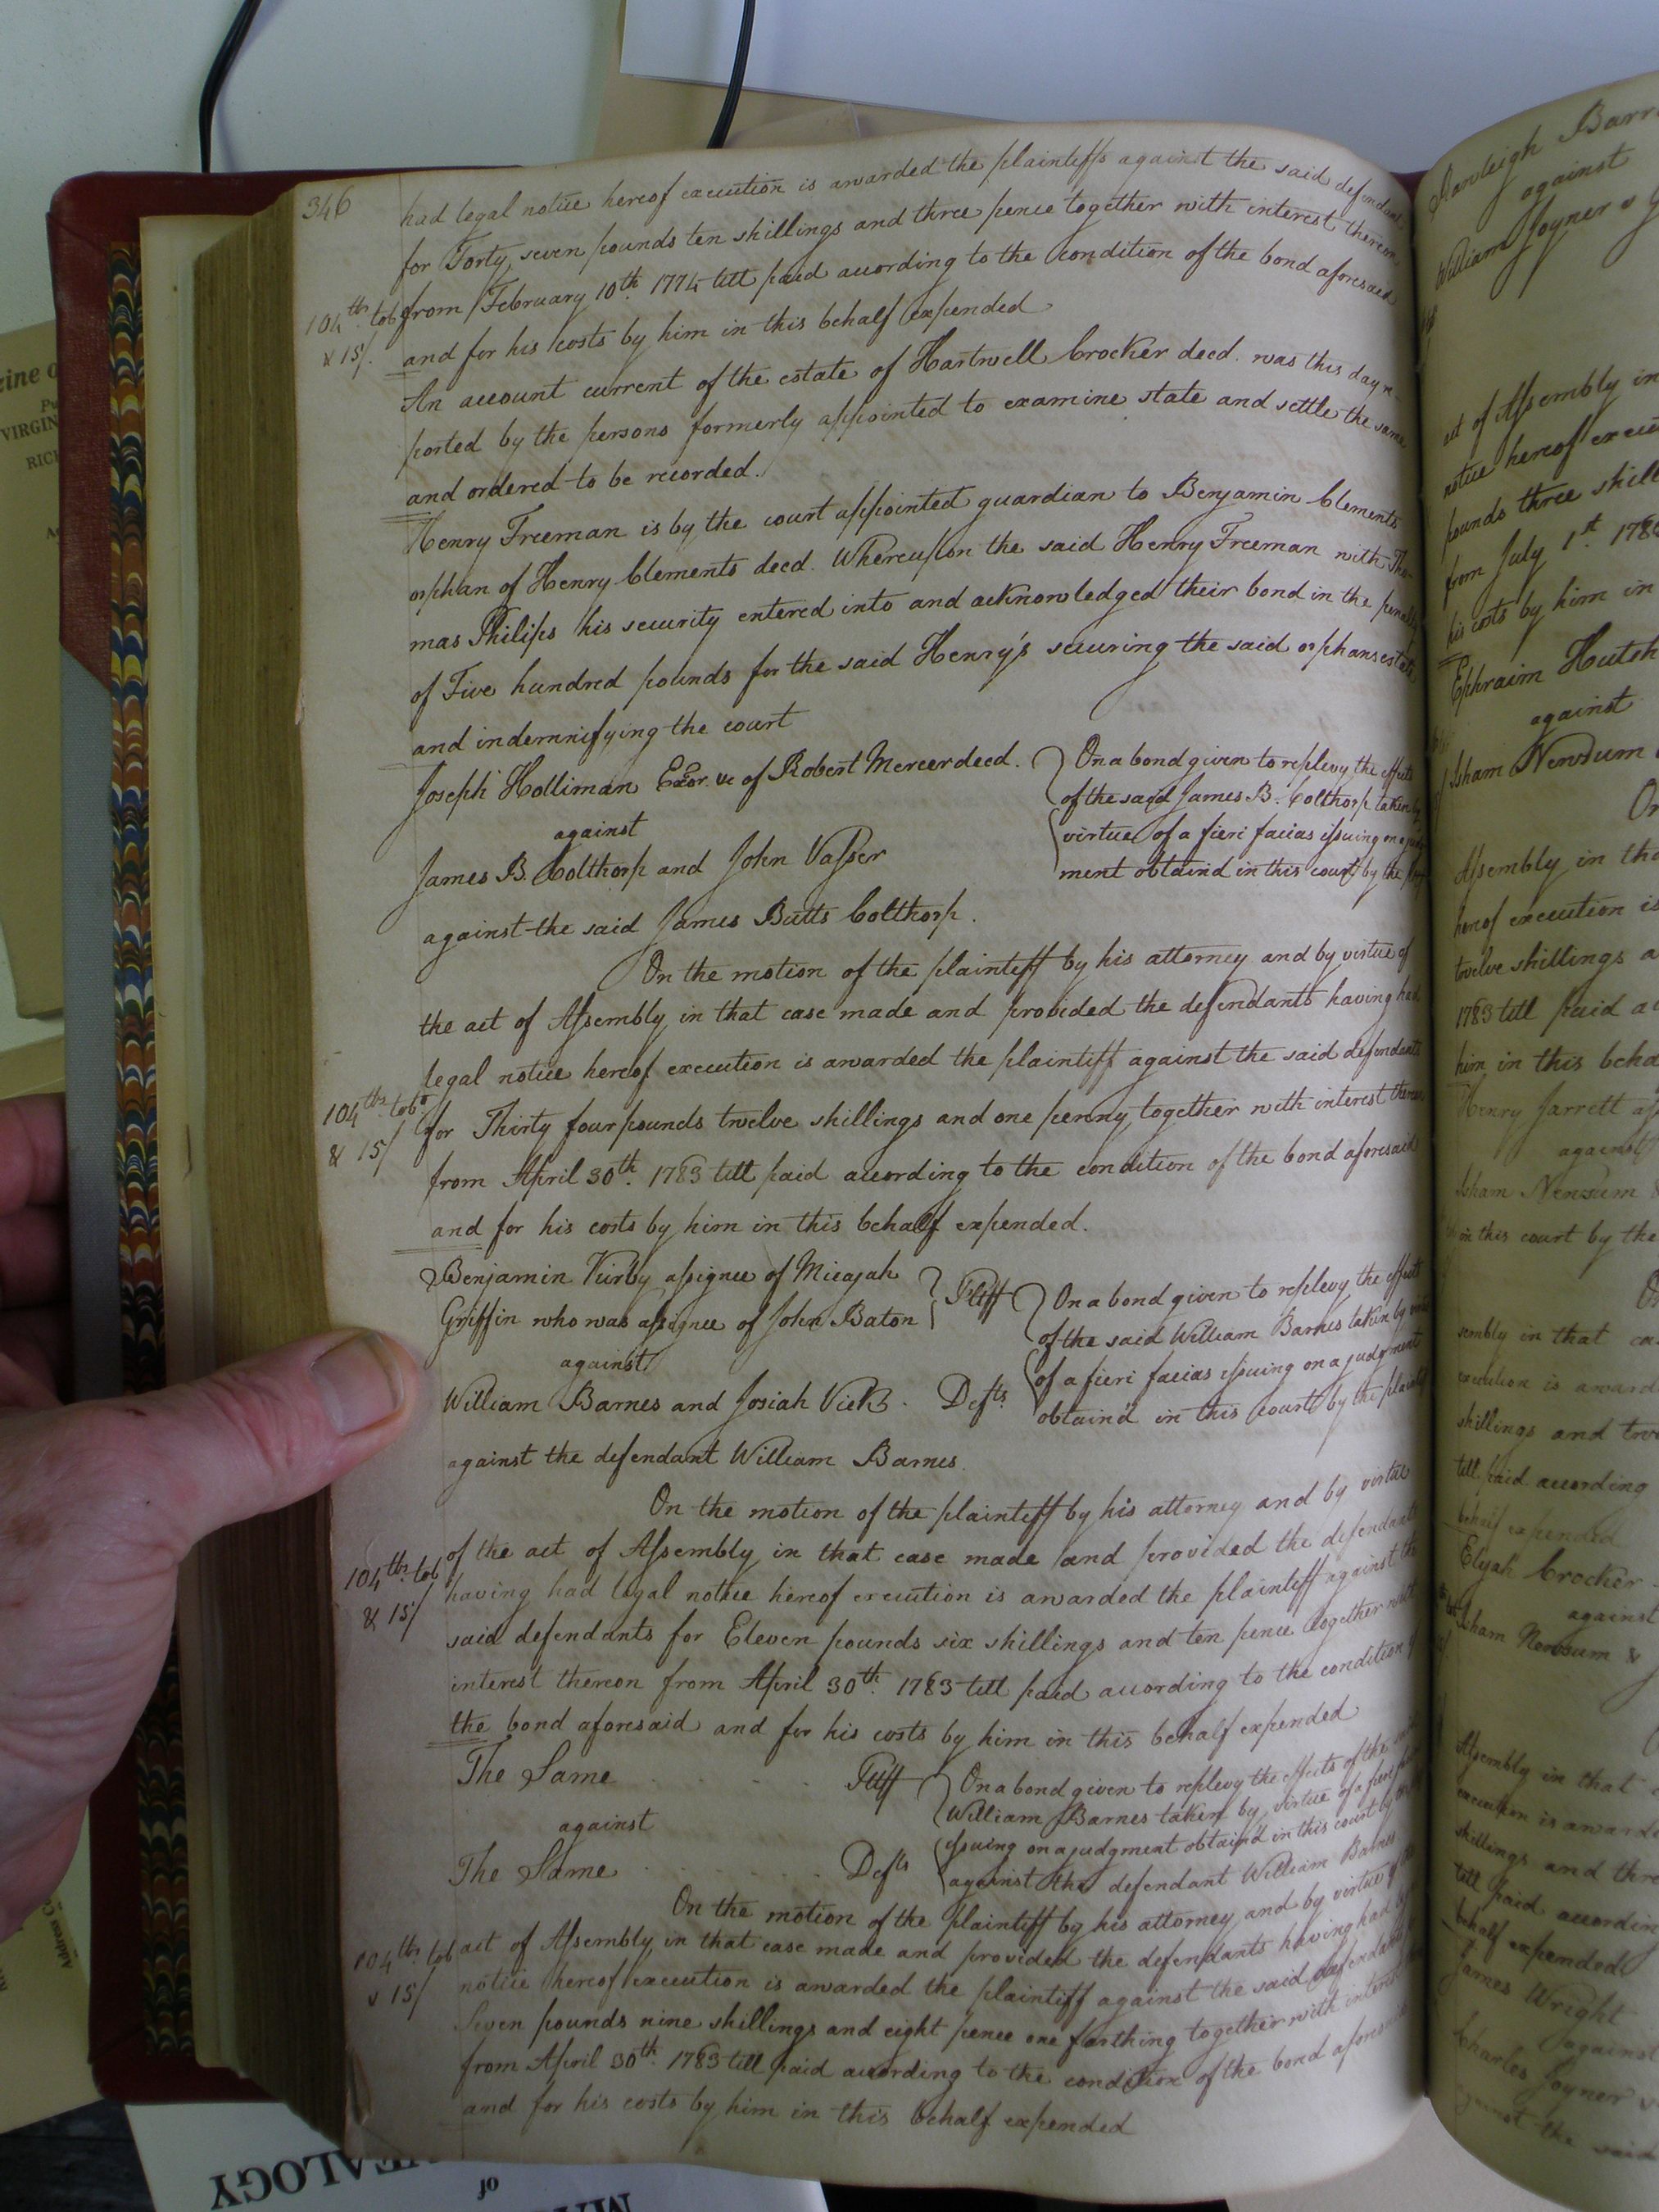 346
had legal notice hereof execution is awarded the plaintiffs against the said defendant
for Forty seven pounds ten shillings and three pence together with interest thereon
104 lb tob from February 10th. 1774 till paid according to the condition of the bond aforesaid
& 15/. and for his costs by him in this behalf expended
An account current of the estate of Hartwell Crocker decd. was this day re
ported by the persons formerly appointed to examine state and settle the same
and ordered to be recorded.
Henry Freeman is by the court appointed guardian to Benjamin Clements
orphan of Henry Clements decd. Whereupon the said Henry Freeman with Tho
mas Philips his security entered into and acknowledged their bond in the penalty
of Five hundred pounds for the said Henry's securing the said orphans estate
and indemnifying the court
Joseph Holliman Exor. &c of Robert Mercer decd.
against
James B. Colthorp and John Vasser
On a bond given to replevy the effects
of the said James B. Colthorp taken by
virtue of a fieri facias issuing on a judg
ment obtaind in this court by the
against the said James Butts Colthorp.
On the motion of the plaintiff by his attorney and by virtue of
the act of Assembly in that case made and provided the defendants having had
legal notice hereof execution is awarded the plaintiff against the said defendants
104 lb tobo for Thirty four pounds twelve shillings and one penny together with interest thereon
& 15/ from April 30th. 1783 till paid according to the condition of the bond aforesaid
and for his costs by him in this behalf expended.
Benjamin Kirby assignee of Micajah
Griffin who was assignee of John Baton Pltff
against
William Barnes and Josiah Vick. Defts.
On a bond given to replevy the effects
of the said William Barnes taken by virtue
of a fieri facias issuing on a judgment
obtain'd in this court by the plaintiff
against the defendant William Barnes.
On the motion of the plaintiff by his attorney and by virtue
of the act of Assembly in that case made and provided the defendants
104 lb tob having had legal notice hereof execution is awarded the plaintiff against the
& 15/ said defendants for Eleven pounds six shillings and ten pence together with
interest thereon from April 30th. 1783 till paid according to the condition of
the bond aforesaid and for his costs by him in this behalf expended
The Same Pltff
against
The Same Defts
On a bond given to replevy the effects of the said
William Barnes taken by virtue of a fieri facias
issuing on a judgment obtain'd in this court by
against the defendant William Barnes
On the motion of the plaintiff by his attorney and by virtue of the
104 lb tob act of Assembly in that case made and provided the defendants having had
& 15/ notice hereof execution is awarded the plaintiff against the said defendants
Seven pounds nine shillings and eight pence one farthing together with interest
from April 30th. 1783 till paid according to the condition of the bond aforesaid
and for his costs by him in this behalf expended
against
William Joyner &
act of Assembly in
notice hereof execu
pounds three shill
from July 1st. 178
his costs by him in
Ephraim Hutch
against
Isham Newsum
On
Assembly in tha
hereof execution is
twelve shillings a
1783 till paid ac
him in this beha
Henry Jarrett
against
Isham Newsum
in this court by the
sembly in that ca
execution is award
shillings and tw
till paid according
behalf expended
Elijah Crocker
against
Isham Newsum &
Assembly in that
execution is awarde
shillings and thre
till paid accordin
behalf expended
James Wright
against
Charles Joyner
against the said
zine o
VIRGIN
RIC
Address
GENEALOGY
of
MA